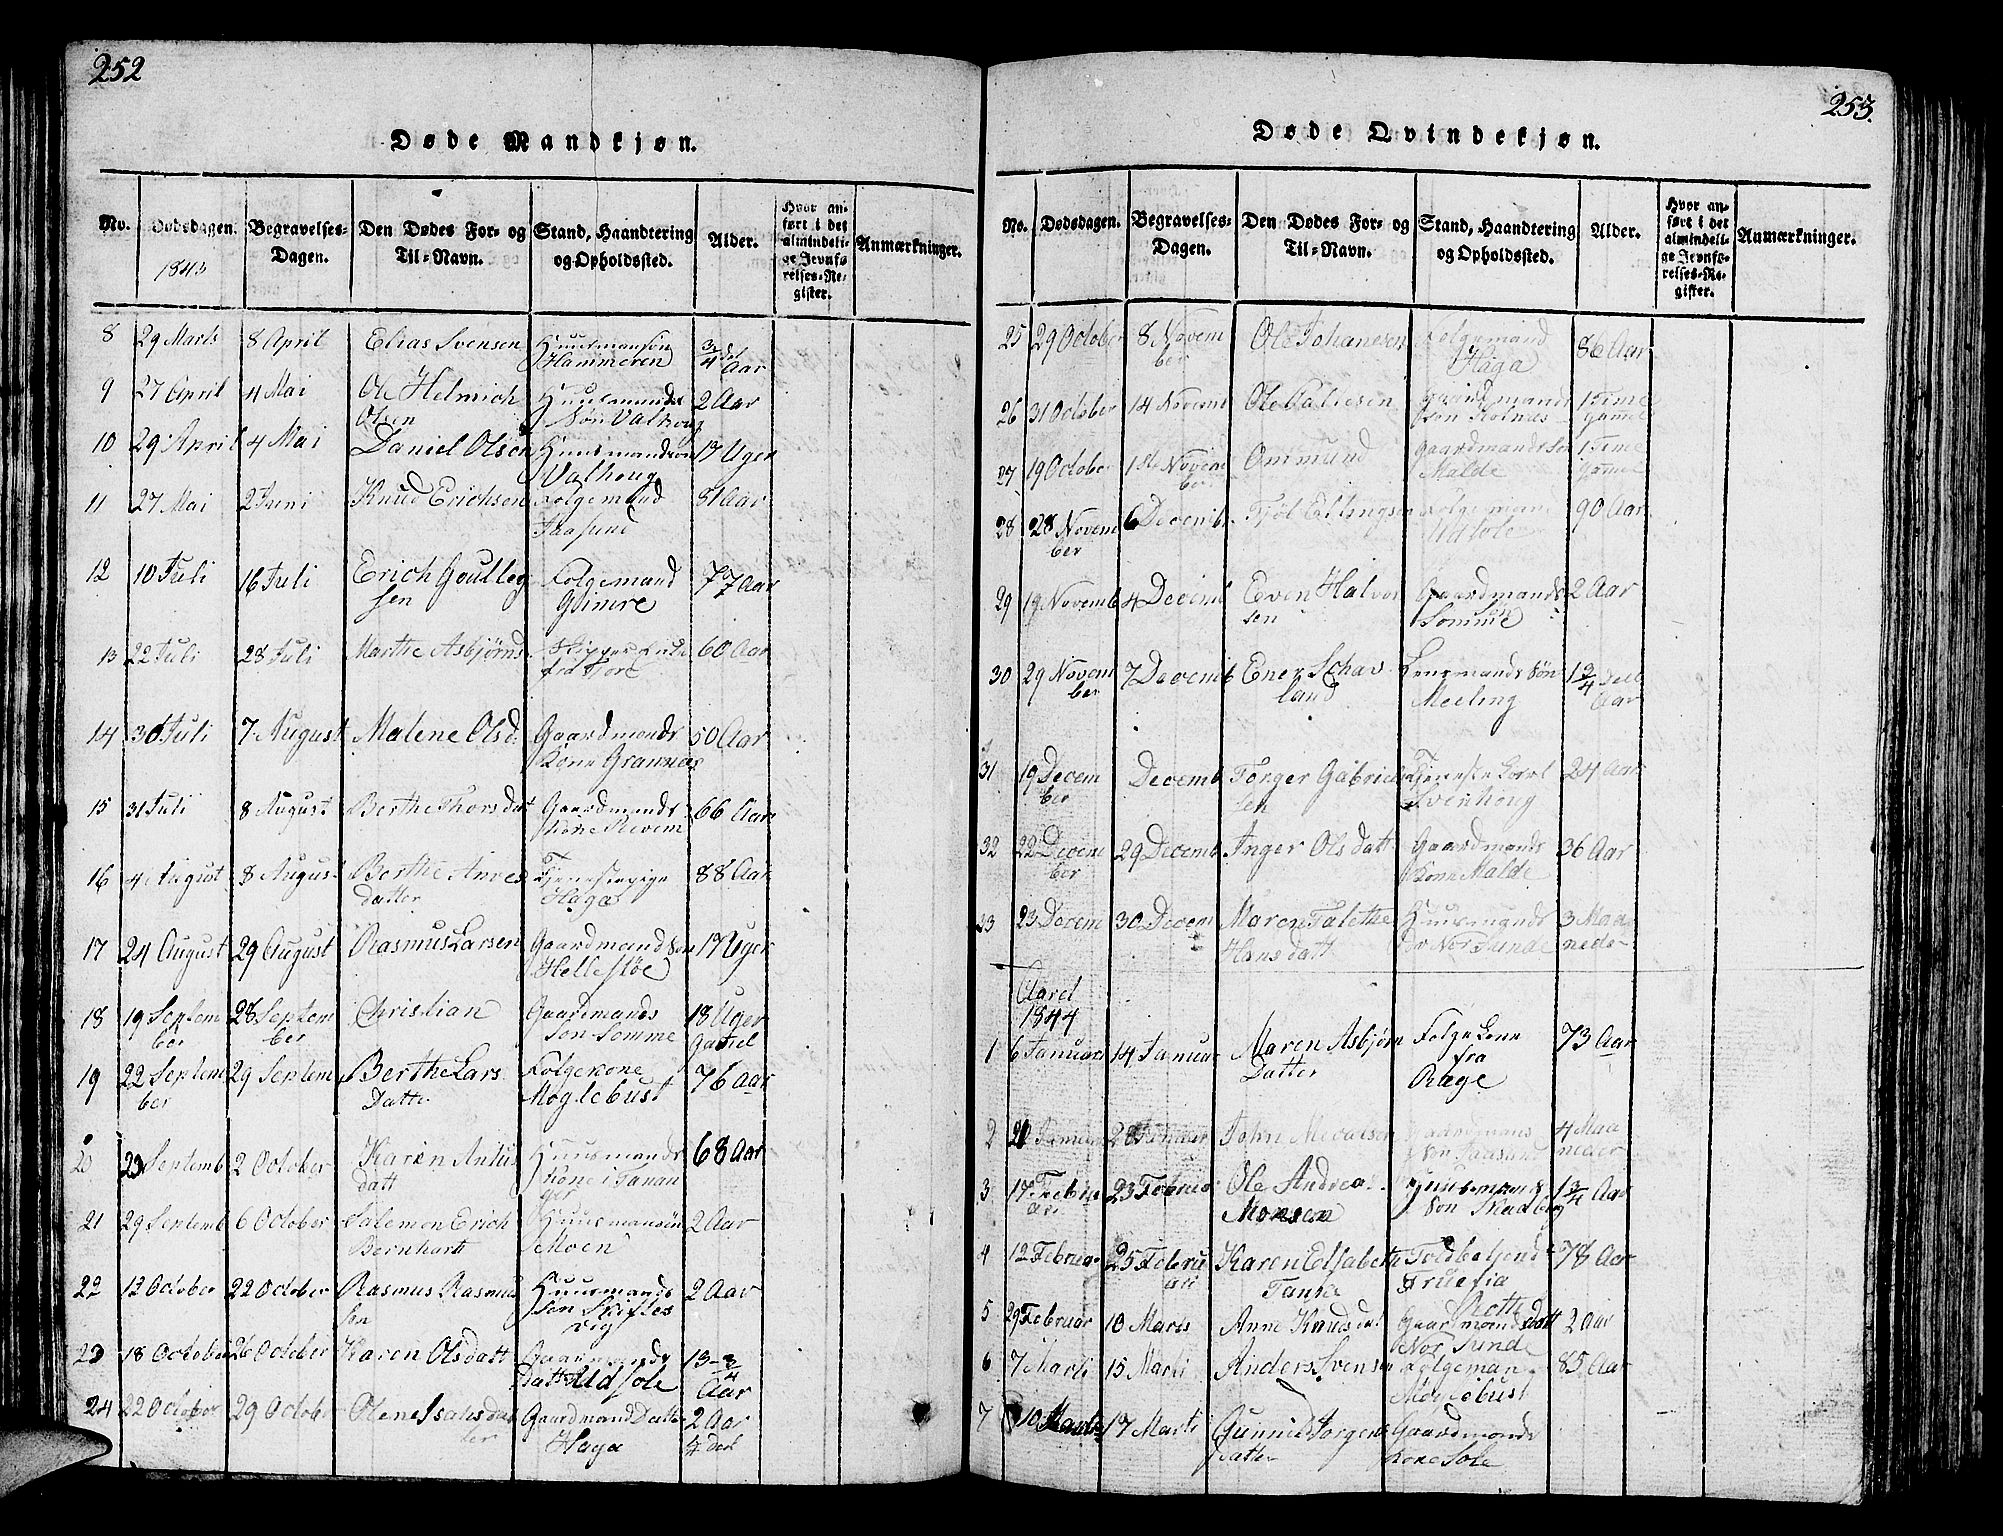 252
Døde Mandkjøn.
No. Dødsdagen. Begravelses-Dagen. Den Dødes For- og Til-Navn. Stand, Haandtering og Opholdssted. Alder. Hvor anført i det almindelige Jevnførelses-Register. Anmærkninger.
1843
8 29 Marts 8 April Elias Svensen Huusmansøn Hammeren 3/4 del Aar
9 27 April 4 Mai Ole Helmich Olsen Huusmands Søn Valhoug 2 Aar
10 29 April 4 Mai Daniel Olsen Huusmandsøn Valhoug 17 Uger
11 27 Mai 2 Juni Knud Erichsen Folgemand 81 Aar
12 10 Juli 16 Juli Erich Goulleg sen Folgemand Gimre 77 Aar
13 22 Juli 28 Juli Marthe Asbjørns fra 60 Aar
14 30 Juli 7 August Malene Olsd. Gaardmands Kone Grannes 50 Aar
15 31 Juli 8 August Berthe Thorsdat Gaardmands Kone Revem 66 Aar
16 4 August 8 August Berthe Anves datter Tjenestepige Haga 88 Aar
17 24 August 29 August Rasmus Larsen Gaardmandsøn Hellestøe 17 Uger
18 19 September 28 September Christian Gaardmands Søn Somme 18 Uger gamel
19 22 September 29 Septem Berthe Lars Datte Folgekone Moglebust 76 Aar
20 23 Septemb 2 October Karen Antus datt Huusmands Kone i Tananger 68 Aar
21 29 Septemb 6 October Salemon Erich Bernhart Huusmansøn Moen 2 Aar
22 12 October 22 October Rasmus Rasmus sen Huusmands Søn Skiftesvig 2 Aar
23 18 October 26 October Karen Olsdatt Gaarmands datt Udsole 13-3/4 Aar
24 22 October 29 October Olene Isaksdatter Gaardmand Datter Haga 2 Aar
253.
Døde Qvindekjøn.
No. Dødsdagen. Begravelses-Dagen. Den Dødes For- og Til-Navn. Stand, Haandtering og Opholdssted. Alder. Hvor anført i det almindelige Jevnførelses-Register. Anmærkninger.
25 29 October 8 November Ole Johanesen Folgemand Haga 86 Aar
26 31 October 14 Novemb Ole Kolnæs 1 Time gamel
27 19 October 1 November Ommund Gaardmandsøn Malde 1 Time gamel
28 28 November 6 Decemb Ellingsen Folgemand Udsole 90 Aar
29 19 Novemb 4 Decemb Even Halvor sen Gaardmands Søn Somme 2 Aar
30 29 November 7 Decemb Ener Schavland Lensmands Søn Meeling 1 3/4 deel Aar
31 19 December Decemb Torger Gabriel sen Tjeneste Svenhoug 24 Aar
32 22 December 29 Decemb Inger Olsdatt Gaardmands Kone Malde 36 Aar
33 23 Decem 30 Decem Maren Talethe Hansdatt Huusmands Nor Sunde 3 Maaneder
Aaret 1844
1 6 Januar 14 Januar Maren Asbjørn Datter Folge fra Ræge 73 Aar
2 21 Januar 28 Januar John 4 Maaneder
3 17 Februari 23 Februar Ole Andreas Monsen Huusmands Søn Skadberg 1 3/4 Aar
4 12 Februar 25 Februari Karen Elsabeth Fruefia Rott 78 Aar
5 29 Februar 10 Marts Anne Knudsdat Gaardmands datt Nor Sunde 2 Aar
6 7 Marti 15 Marti Anders Svensen Folgeman Moglebust 85 Aar
7 10 Marts 17 Marti Gunnil Jorgens Datter Gaardmands Kone Sole